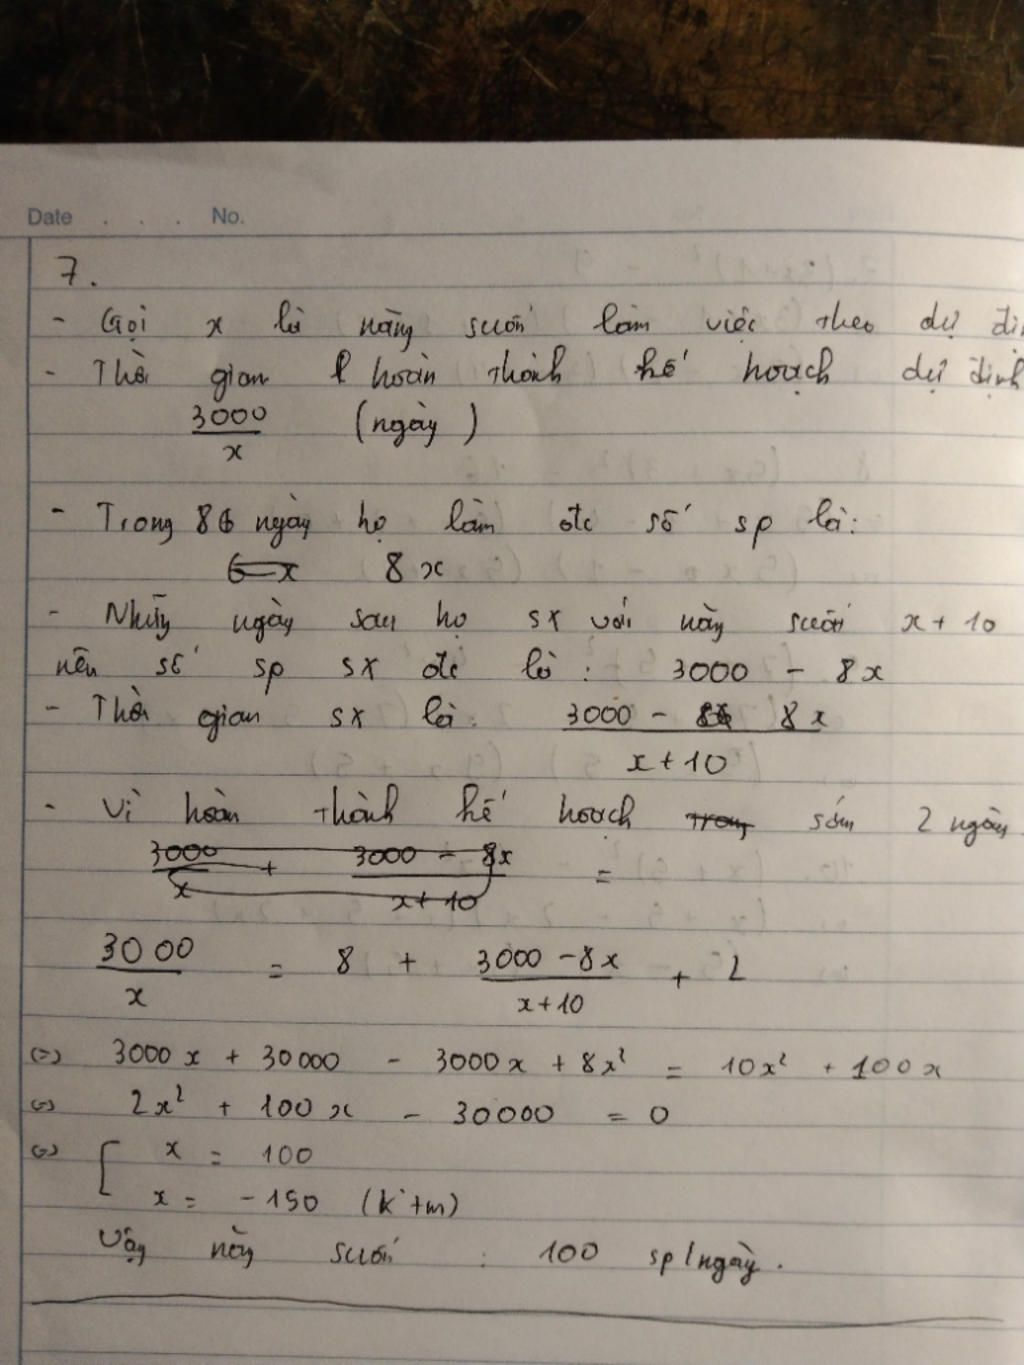 Date . . . No.
7.
- Gọi x là năng suất làm việc theo dự đị
- Thời gian hoàn thành kế hoạch dự định
3000/x (ngày)
- Trong 8 ngày họ làm đc số sp là:
6x 8x
- Những ngày sau họ sx với năng suất x+10
nên số sp sx đc là: 3000 - 8x
- Thời gian sx là: (3000 - 8x)/(x+10)
- Vì hoàn thành kế hoạch trong sớm 2 ngày
3000/x + (3000 - 8x)/(x+10) =
3000/x = 8 + (3000 - 8x)/(x+10) + 2
(=) 3000x + 30000 - 3000x + 8x² = 10x² + 100x
(=) 2x² + 100x - 30000 = 0
(=) [ x = 100
x = -150 (k tm)
Vậy năng suất : 100 sp/ngày.